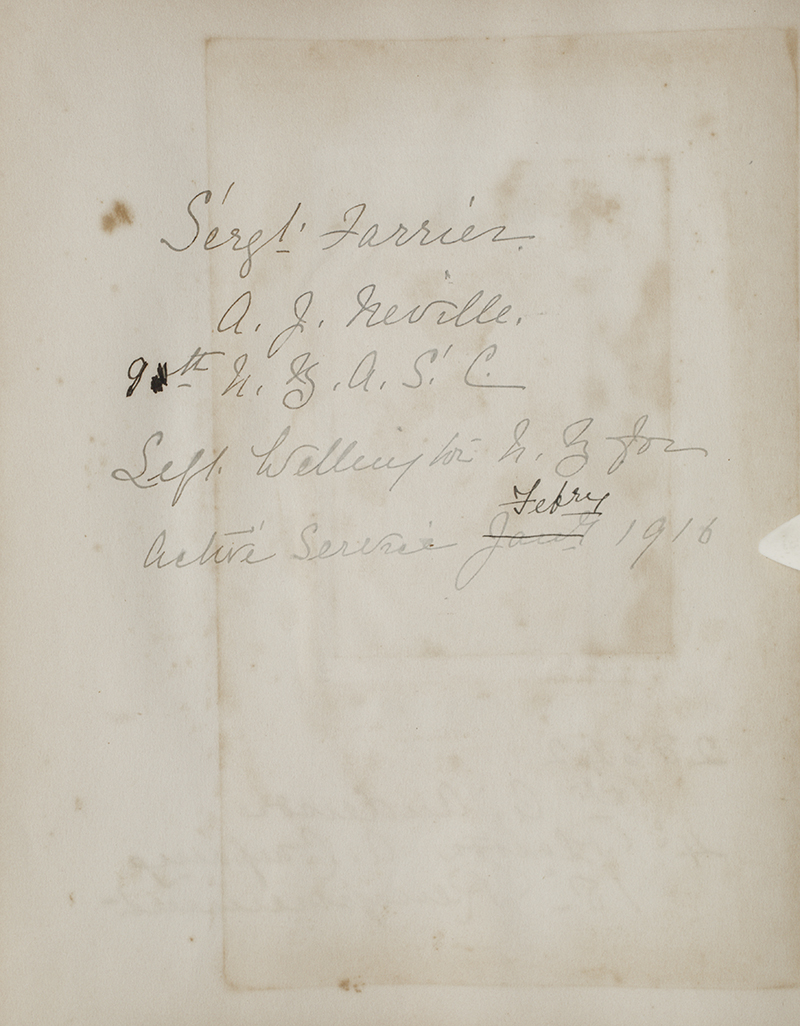 Sergt. Farrier.
A. J. Neville.
9th N. Z. A. S. C.
Left Wellington N. Z for
Febry
Active Service Jany 1916